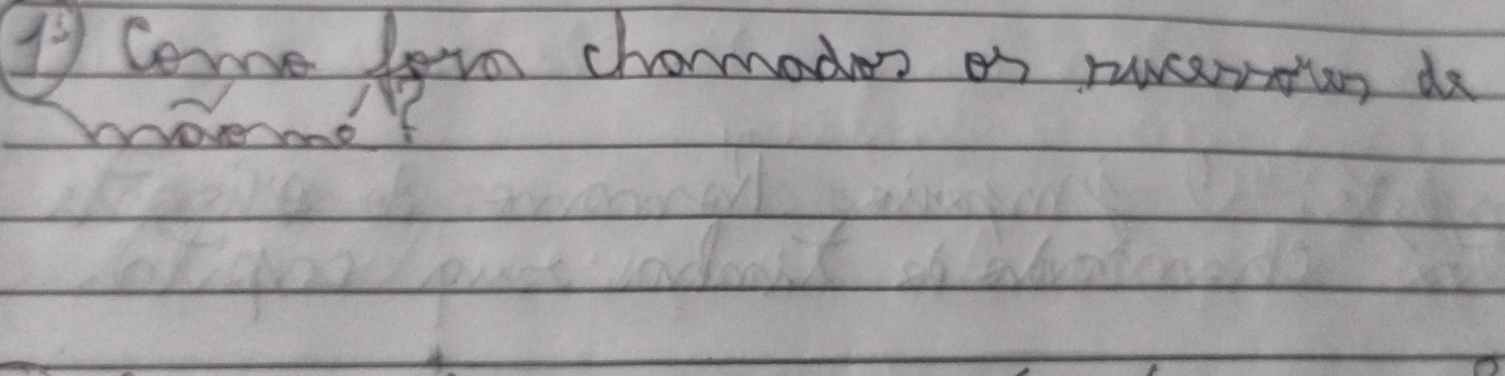 1ª) Como foram chamados os sucessores de
maomé?